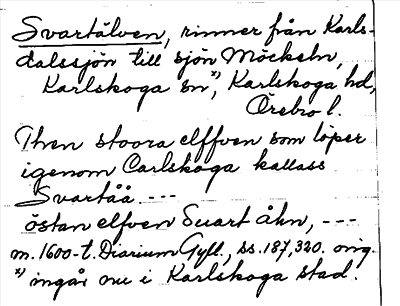 Svartälven, rinner från Karls-
dalssjön till sjön Möckeln,
Karlskoga sn*), Karlskoga hd,
Örebro l.
Then stoora elffven som löper
igenom Carlskoga kallass
Svartåå. ---
östan elfven Suart åhn, ---
m. 1600-t. Diarium Gyll., ss. 187, 320. orig.
*) ingår nu i Karlskoga stad.